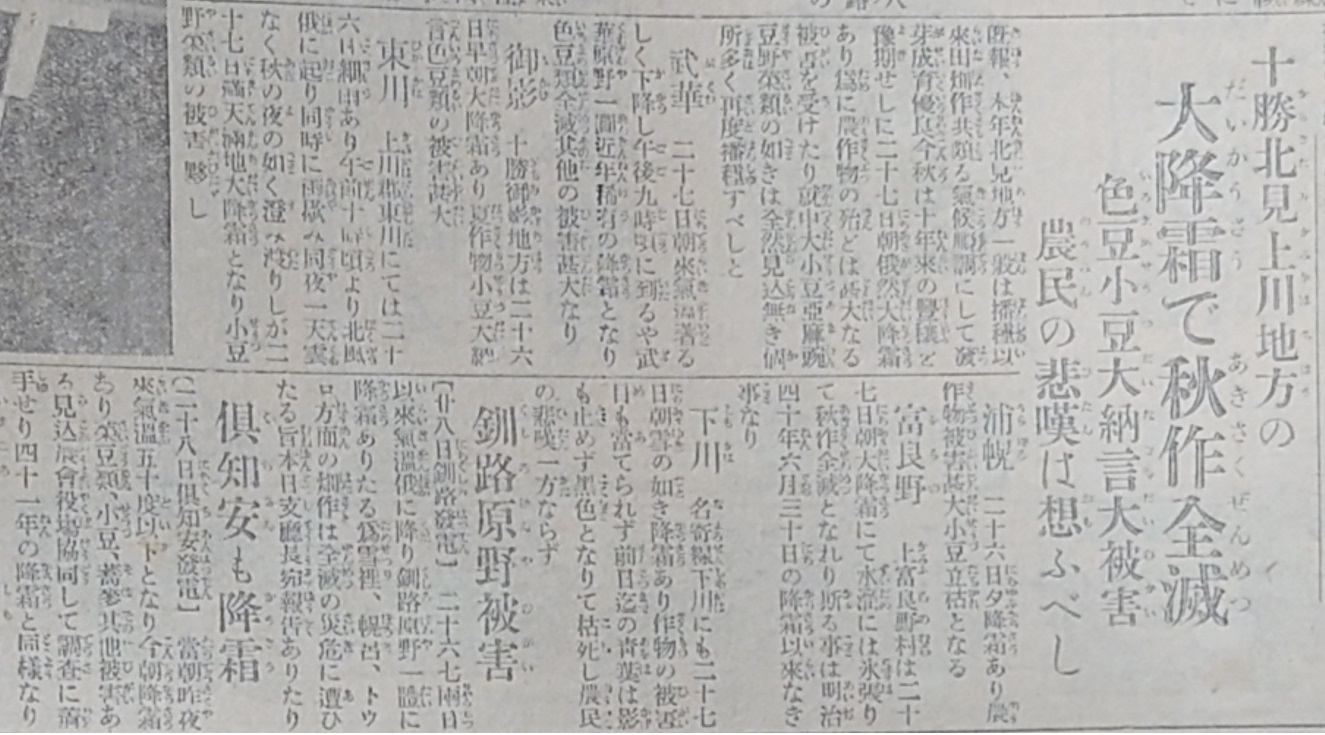 十勝北見上川地方の
大降霜で秋作全滅
色豆小豆大納言大被害
農民の悲嘆は想ふべし
既報、本年北見地方一般は播種以
來田畑作共頗る氣候順調にして發
芽成育優良今秋は十年來の豐穰を
豫期せしに二十七日朝俄然大降霜
あり爲に農作物の殆どは甚大なる
被害を受けたり就中大小豆亞麻豌
豆野菜類の如きは全然見込無き個
所多く再度播種すべしと
武華 二十七日朝來氣温著る
しく下降し午後九時に到るや武
華原野一圓近年稀有の降霜となり
色豆類全滅其他の被害甚大なり
御影 十勝御影地方は二十六
日早朝大降霜あり夏作物小豆大納
言色豆類の被害甚大
東川 上川郡東川にては二十
六日細雨あり午前十時頃より北風
俄に起り同時に雨歇み同夜一天雲
なく秋の夜の如く澄み渡りしが二
十七日滿天滿地大降霜となり小豆
野菜類の被害夥し
浦幌 二十六日夕降霜あり農
作物被害甚大小豆立枯となる
富良野 上富良野村は二十
七日朝大降霜にて水溜には氷張り
て秋作全滅となれり斯る事は明治
四十年六月三十日の降霜以來なき
事なり
下川 名寄線下川にも二十七
日朝雪の如き降霜あり作物の被害
目も當てられず前日迄の青葉は影
も止めず黑色となりて枯死し農民
の悲嘆一方ならず
釧路原野被害
〔廿八日釧路發電〕 二十六七兩日
以來氣温俄に降り釧路原野一體に
降霜ありたる爲雪裡、幌呂、トウ
ロ方面の畑作は全滅の災危に遭ひ
たる旨本日支廳長宛報告ありたり
倶知安も降霜
〔二十八日倶知安發電〕 當朝昨夜
來氣温五十度以下となり今朝降霜
あり菜豆類、小豆、蕎麥其他被害あ
る見込農會役場協同して調査に着
手せり四十一年の降霜と同樣なり